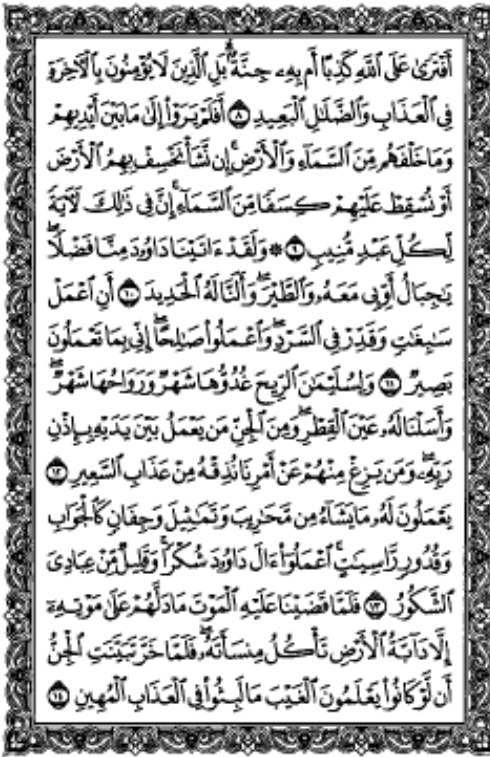 أَفْتَرَىٰ عَلَى ٱللَّهِ كَذِبًا أَم بِهِۦ جِنَّةٌۢ ۗ بَلِ ٱلَّذِينَ لَا يُؤْمِنُونَ بِٱلْءَاخِرَةِ
فِى ٱلْعَذَابِ وَٱلضَّلَٰلِ ٱلْبَعِيدِ ٨ أَفَلَمْ يَرَوْا۟ إِلَىٰ مَا بَيْنَ أَيْدِيهِمْ
وَمَا خَلْفَهُم مِّنَ ٱلسَّمَآءِ وَٱلْأَرْضِ ۚ إِن نَّشَأْ نَخْسِفْ بِهِمُ ٱلْأَرْضَ
أَوْ نُسْقِطْ عَلَيْهِمْ كِسَفًا مِّنَ ٱلسَّمَآءِ ۚ إِنَّ فِى ذَٰلِكَ لَءَايَةً
لِّكُلِّ عَبْدٍ مُّنِيبٍ ٩ ۞ وَلَقَدْ ءَاتَيْنَا دَاوُۥدَ مِنَّا فَضْلًا ۖ
يَٰجِبَالُ أَوِّبِى مَعَهُۥ وَٱلطَّيْرَ ۖ وَأَلَنَّا لَهُ ٱلْحَدِيدَ ١٠ أَنِ ٱعْمَلْ
سَٰبِغَٰتٍ وَقَدِّرْ فِى ٱلسَّرْدِ ۖ وَٱعْمَلُوا۟ صَٰلِحًا ۖ إِنِّى بِمَا تَعْمَلُونَ
بَصِيرٌ ١١ وَلِسُلَيْمَٰنَ ٱلرِّيحَ غُدُوُّهَا شَهْرٌ وَرَوَاحُهَا شَهْرٌ ۖ
وَأَسَلْنَا لَهُۥ عَيْنَ ٱلْقِطْرِ ۖ وَمِنَ ٱلْجِنِّ مَن يَعْمَلُ بَيْنَ يَدَيْهِ بِإِذْنِ
رَبِّهِۦ ۖ وَمَن يَزِغْ مِنْهُمْ عَنْ أَمْرِنَا نُذِقْهُ مِنْ عَذَابِ ٱلسَّعِيرِ ١٢
يَعْمَلُونَ لَهُۥ مَا يَشَآءُ مِن مَّحَٰرِيبَ وَتَمَٰثِيلَ وَجِفَانٍ كَٱلْجَوَابِ
وَقُدُورٍ رَّاسِيَٰتٍ ۚ ٱعْمَلُوٓا۟ ءَالَ دَاوُۥدَ شُكْرًا ۚ وَقَلِيلٌ مِّنْ عِبَادِىَ
ٱلشَّكُورُ ١٣ فَلَمَّا قَضَيْنَا عَلَيْهِ ٱلْمَوْتَ مَا دَلَّهُمْ عَلَىٰ مَوْتِهِۦٓ
إِلَّا دَآبَّةُ ٱلْأَرْضِ تَأْكُلُ مِنسَأَتَهُۥ ۖ فَلَمَّا خَرَّ تَبَيَّنَتِ ٱلْجِنُّ
أَن لَّوْ كَانُوا۟ يَعْلَمُونَ ٱلْغَيْبَ مَا لَبِثُوا۟ فِى ٱلْعَذَابِ ٱلْمُهِينِ ١٤